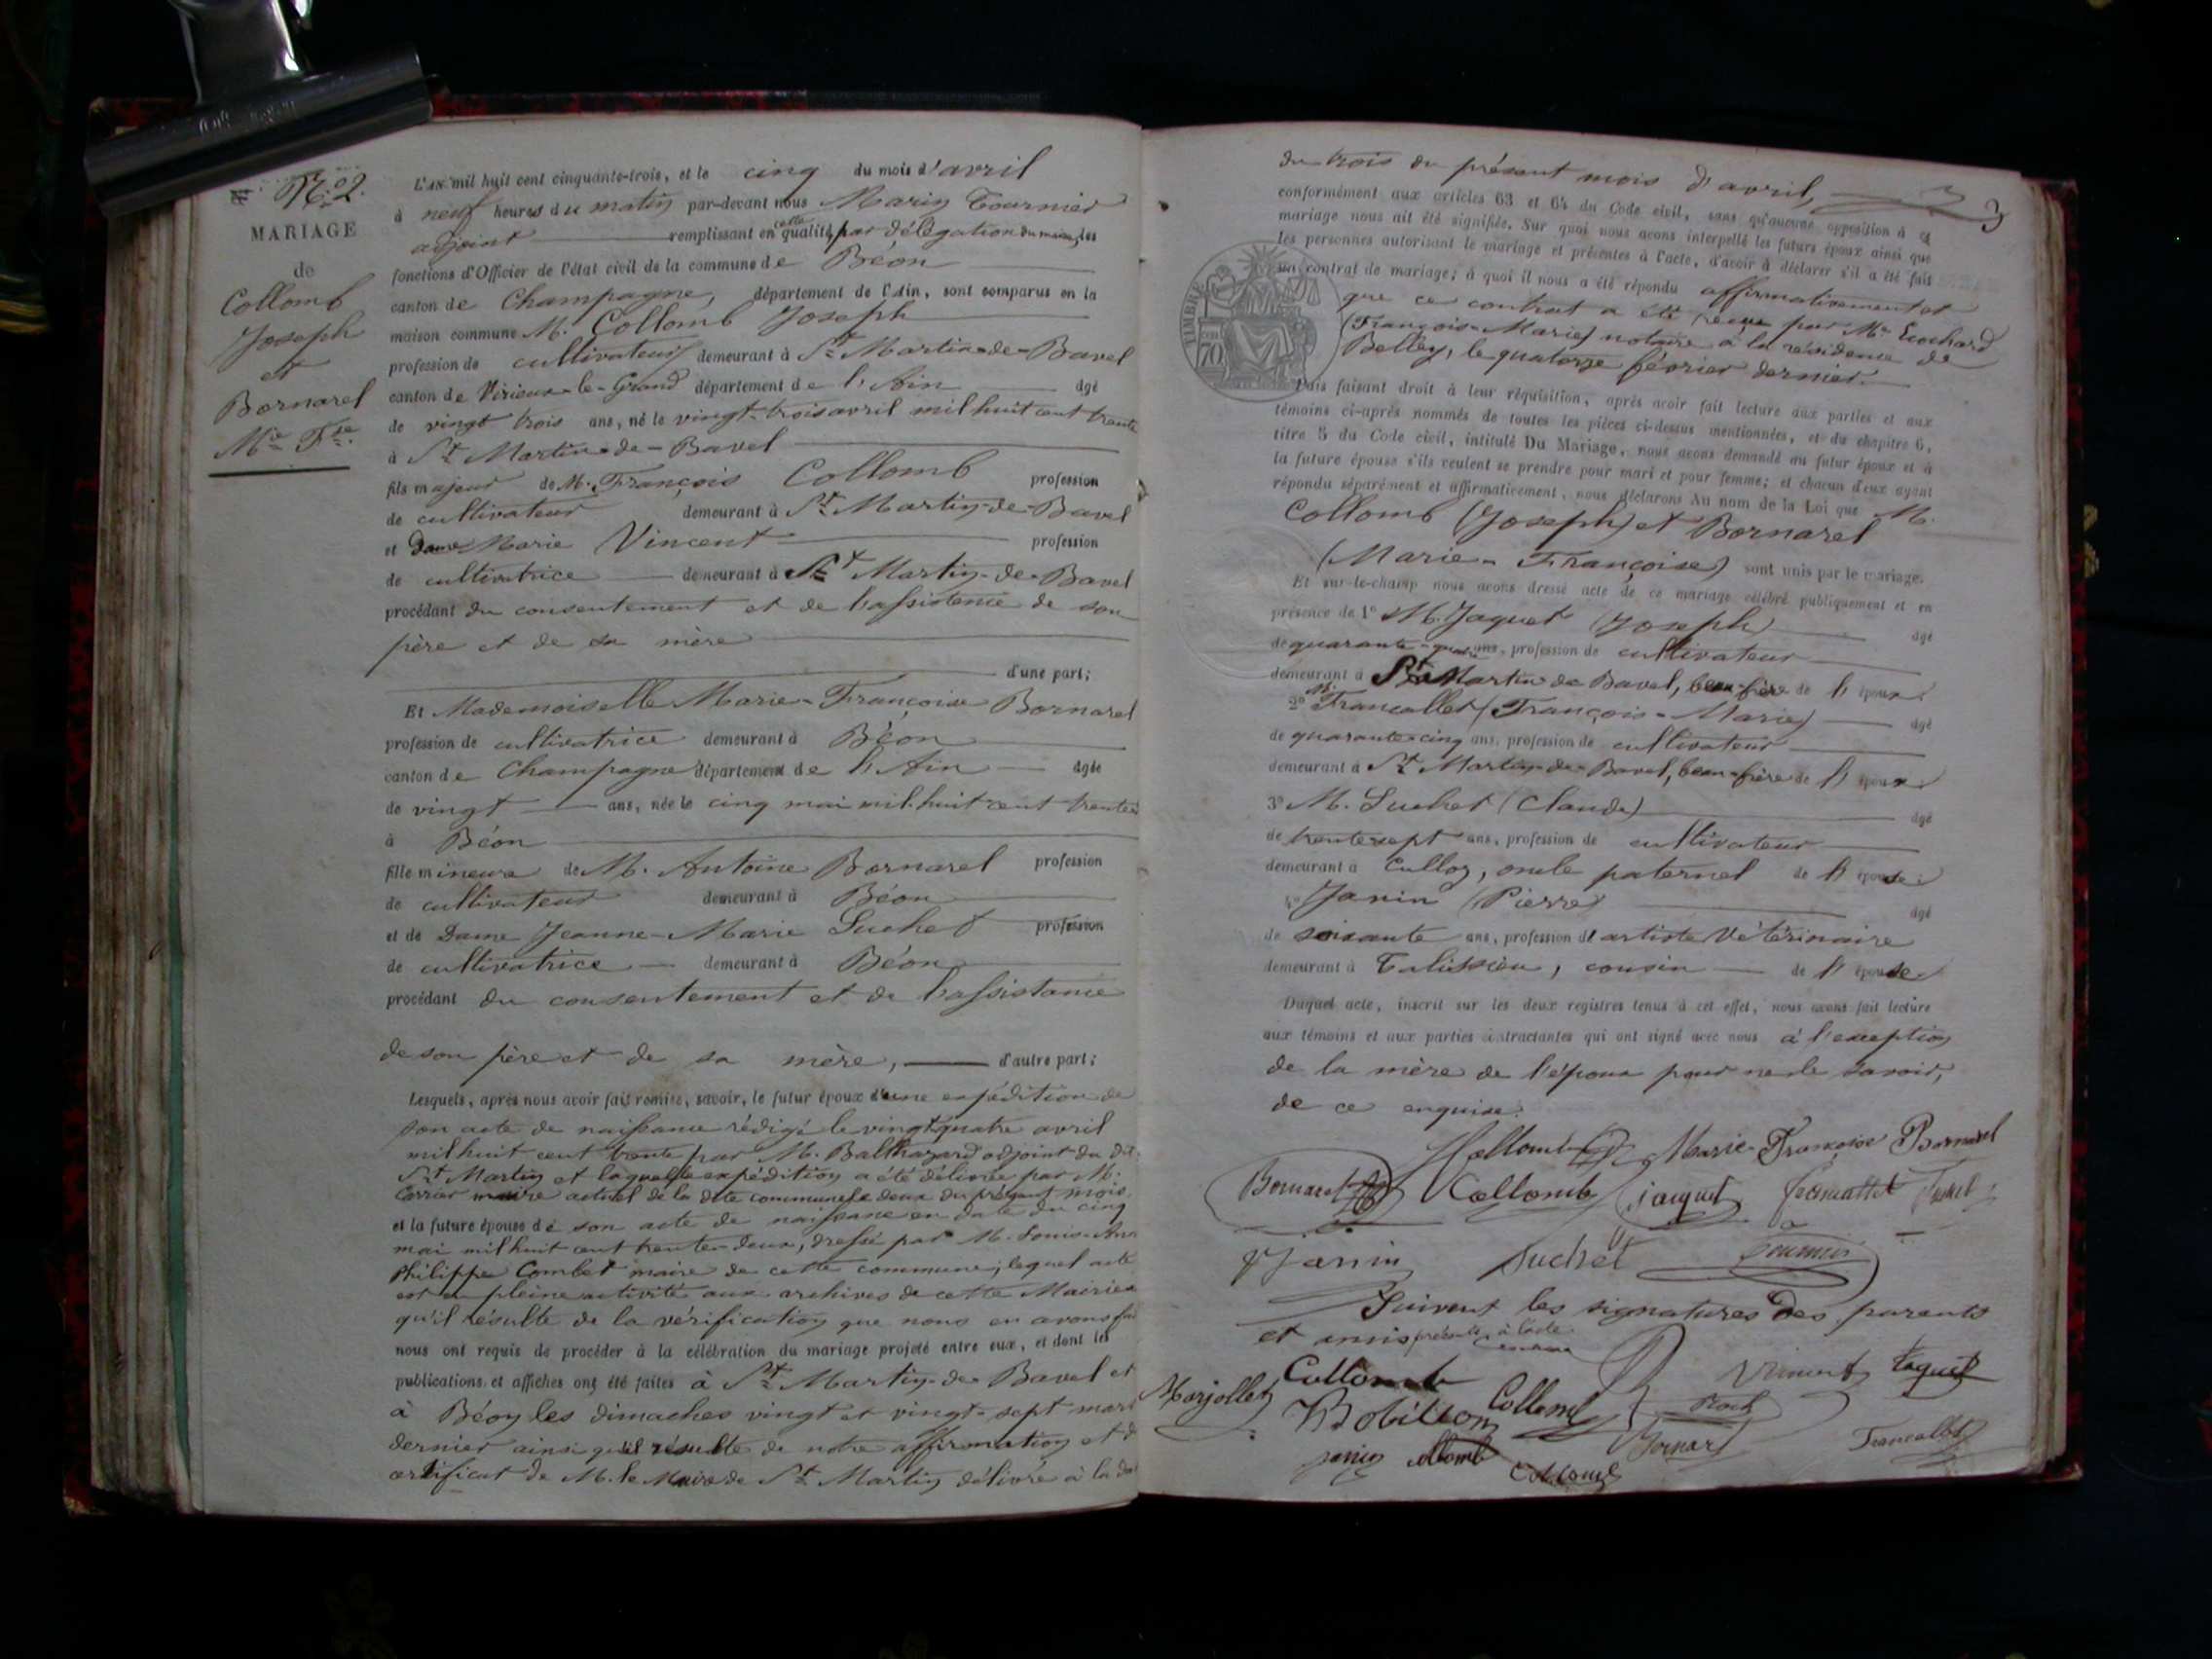 N.° 2.
MARIAGE
de
Collomb
Joseph
et
Bornarel
M.ie F.se
L'AN mil huit cent cinquante-trois, et le cinq du mois d'avril
à neuf heures du matin par-devant nous Marin Tournier
adjoint remplissant en cette qualité, par délégation du maire, les
fonctions d'Officier de l'état civil de la commune de Béon
canton de Champagne, département de l'Ain, sont comparus en la
maison commune M. Collomb Joseph
profession de cultivateur demeurant à St Martin-de-Bavel
canton de Virieux-le-Grand département de l'Ain âgé
de vingt trois ans, né le vingt-trois avril mil huit cent trente
à St Martin-de-Bavel
fils majeur de M. François Collomb profession
de cultivateur demeurant à St Martin-de-Bavel
et Dame Marie Vincent profession
de cultivatrice demeurant à St Martin-de-Bavel
procédant du consentement et de l'assistance de son
père et de sa mère
d'une part;
Et Mademoiselle Marie-Françoise Bornarel
profession de cultivatrice demeurant à Béon
canton de Champagne département de l'Ain âgée
de vingt ans, née le cinq mai mil huit cent trente
à Béon
fille mineure de M. Antoine Bornarel profession
de cultivateur demeurant à Béon
et de Dame Jeanne-Marie Suchet profession
de cultivatrice demeurant à Béon
procédant du consentement et de l'assistance
de son père et de sa mère, d'autre part;
Lesquels, après nous avoir fait remise, savoir, le futur époux d'une expédition de
son acte de naissance rédigé le vingt quatre avril
mil huit cent trente par M. Balthazard adjoint du dit
St Martin et laquelle expédition a été délivrée par M.
Carrier maire actuel de la dite commune le deux du présent mois
et la future épouse de son acte de naissance en date du cinq
mai mil huit cent trente-deux, dressé par M. Louis
Philippe Combet maire de cette commune; lequel acte
est en pleine activité aux archives de cette Mairie
qu'il résulte de la vérification que nous en avons fai
nous ont requis de procéder à la célébration du mariage projeté entre eux, et dont les
publications et affiches ont été faites à St Martin-de-Bavel et
à Béon les dimaches vingt et vingt-sept mars
dernier ainsi qu'il résulte de notre affirmation et d
certificat de M. le Maire de St Martin délivré à la da
3
du trois du présent mois d'avril,
conformément aux articles 63 et 64 du Code civil, sans qu'aucune opposition à ce
mariage nous ait été signifiée. Sur quoi nous avons interpellé les futurs époux ainsi que
les personnes autorisant le mariage et présentes à l'acte, d'avoir à déclarer s'il a été fait
un contrat de mariage; à quoi il nous a été répondu affirmativement et
que ce contrat a été reçu par Me Lochard
(François-Marie) notaire à la résidence de
Belley, le quatorze février dernier.
TIMBRE
70
Puis faisant droit à leur réquisition, après avoir fait lecture aux parties et aux
témoins ci-après nommés de toutes les pièces ci-dessus mentionnées, et du chapitre 6,
titre 5 du Code civil, intitulé Du Mariage, nous avons demandé au futur époux et à
la future épouse s'ils veulent se prendre pour mari et pour femme; et chacun d'eux ayant
répondu séparément et affirmativement, nous déclarons Au nom de la Loi que M.
Collomb (Joseph) et Bornarel
(Marie-Françoise) sont unis par le mariage.
Et sur-le-champ nous avons dressé acte de ce mariage célébré publiquement et en
présence de 1° M. Jaquet (Joseph) âgé
de quarante-quatre ans, profession de cultivateur
demeurant à St Martin de Bavel, beau-frère de l'époux.
2° M. Francallet (François-Marie) âgé
de quarante-cinq ans, profession de cultivateur
demeurant à St Martin-de-Bavel, beau-frère de l'époux
3° M. Suchet (Claude) âgé
de trente sept ans, profession de cultivateur
demeurant à Culloz, oncle paternel de l'épouse
4° Janin (Pierre) âgé
de soixante ans, profession d'artiste Vétérinaire
demeurant à Talissieu, cousin de l'épouse
Duquel acte, inscrit sur les deux registres tenus à cet effet, nous avons fait lecture
aux témoins et aux parties contractantes qui ont signé avec nous à l'exception
de la mère de l'époux pour ne le savoir,
de ce enquise.
Collomb Marie-Françoise Bornarel
Bornarel Collomb jaquet francallet Suchet
Janin Suchet Tournier
Suivent les signatures des parents
et amis présents à l'acte
Collomb Vincent Jaquet
Marjollet Bobillon Collomb Roch
janin collomb Collomb Bornarel Francallet